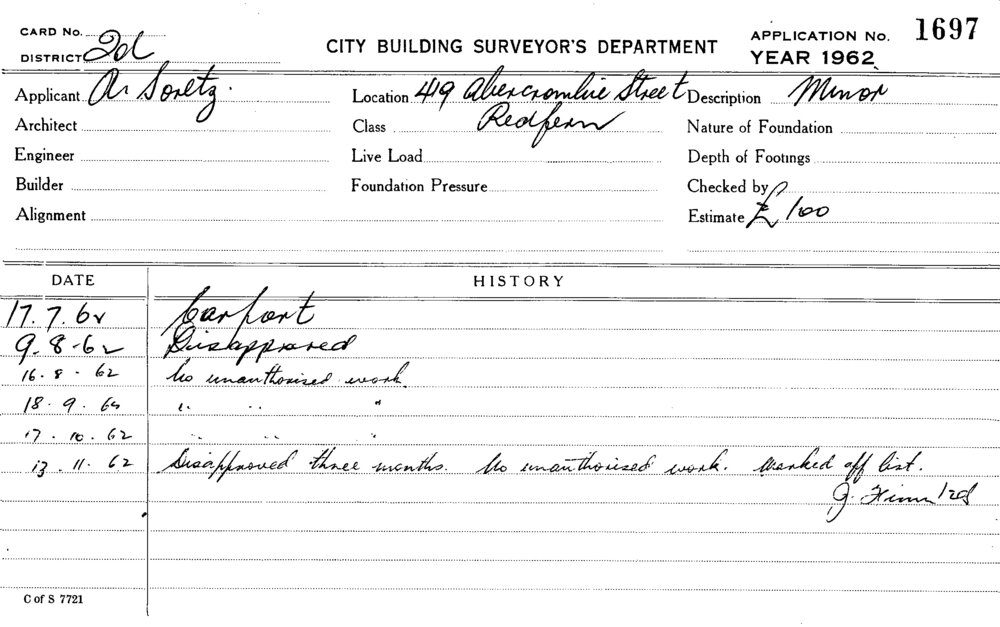 CARD No.
DISTRICT 2d
CITY BUILDING SURVEYOR'S DEPARTMENT
APPLICATION No. 1697
YEAR 1962
Applicant Soretz. Location 419 Abercrombie Street Description Minor
Architect Class Redfern Nature of Foundation
Engineer Live Load Depth of Footings
Builder Foundation Pressure Checked by
Alignment Estimate £100
DATE HISTORY
17.7.62 Carport
9-8-62 Disapproved
16.8.62 No unauthorised work.
18.9.62 " " "
17.10.62 " " "
13.11.62 Disapproved three months. No unauthorised work. Marked off list.
J.
C of S 7721